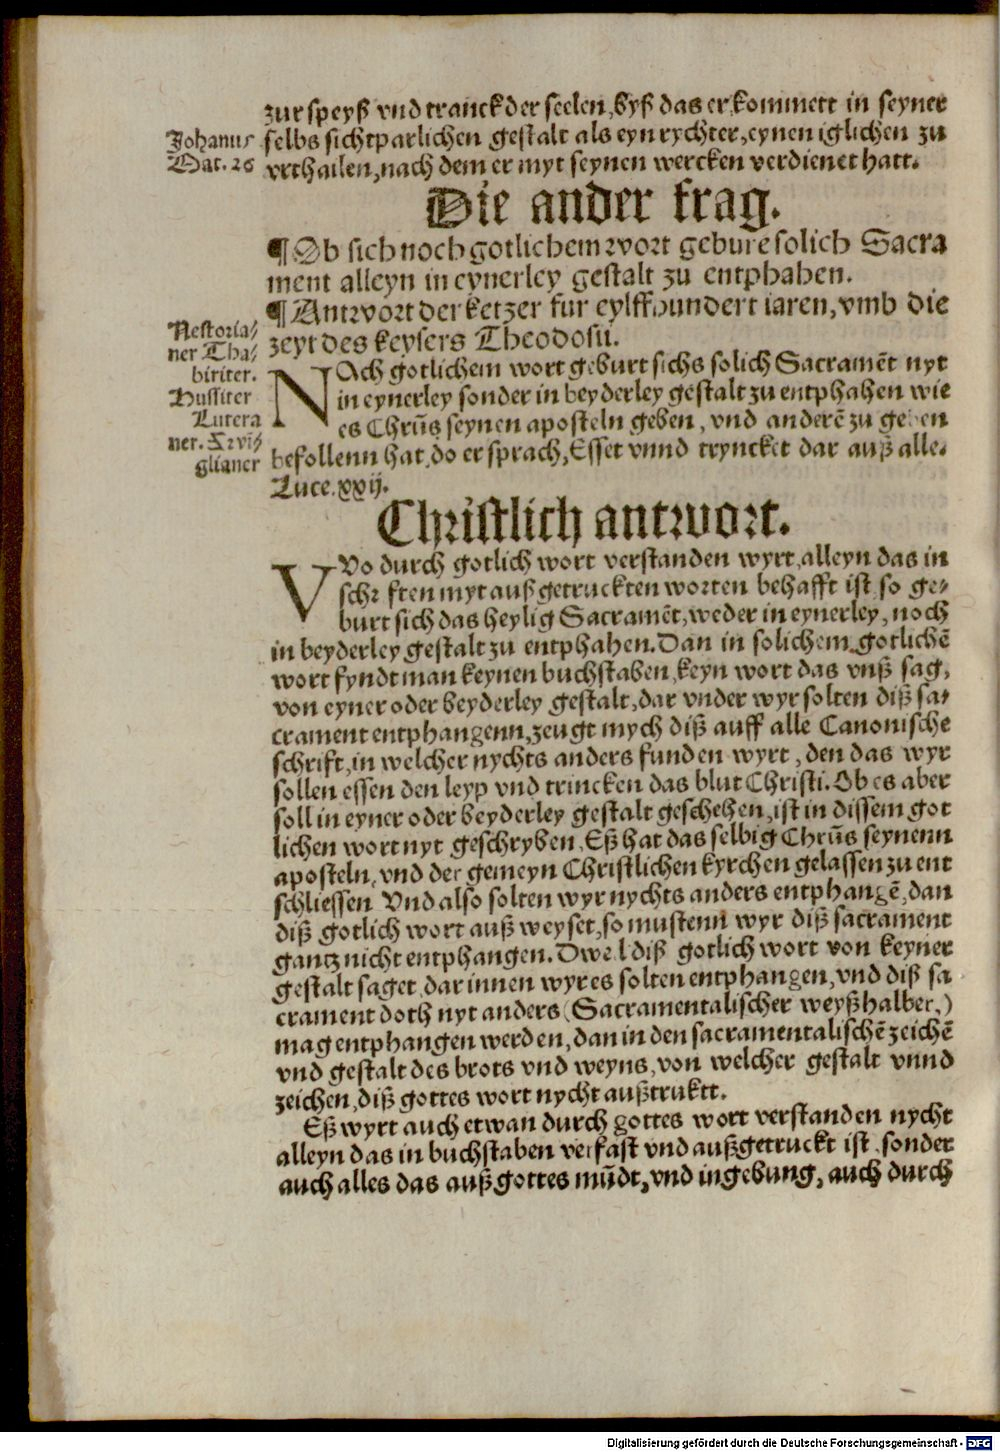 zur speyß vnd tranck der seelen, byß das er kommett in seyner
Johanns
Mat. 26
selbs sichtparlichen gestalt als eyn rychter, eynen iglichen zu
vrthailen, nach dem er myt seynen wercken verdienet hatt.
Die ander frag.
¶ Ob sich noch gotlichem wort gebure solich Sacra
ment alleyn in eynerley gestalt zu entphahen.
¶ Antwort der ketzer fur eylffhundert iaren, vmb die
zeyt des keysers Theodosii.
Nestoria/
ner Tha/
biriter.
Hussiter
Lutera
ner. Zwi/
glianer
NAch gotlichem wort geburt sichs solich Sacramēt nyt
in eynerley sonder in beyderley gestalt zu entphahen wie
es Chrūs seynen aposteln geben, vnd anderē zu geben
befollenn hat, do er sprach, Esset vnnd tryncket dar auß alle.
Luce. xxij.
Christlich antwort.
VVo durch gotlich wort verstanden wyrt, alleyn das in
schrften myt außgetruckten worten behafft ist, so ge-
burt sich das heylig Sacramēt, weder in eynerley, noch
in beyderley gestalt zu entphahen. Dan in solichem gotlichē
wort fyndt man keynen buchstaben, keyn wort das vnß sag,
von eyner oder beyderley gestalt, dar vnder wyr solten diß sa-
crament entphangenn, zeugt mych diß auff alle Canonische
schrift, in welcher nychts anders funden wyrt, den das wyr
sollen essen den leyp vnd trincken das blut Christi. Ob es aber
soll in eyner oder beyderley gestalt geschehen, ist in dissem got
lichen wort nyt geschryben, Eß hat das selbig Chrūs seynenn
aposteln, vnd der gemeyn Christlichen kyrchen gelassen zu ent
schliessen Vnd also solten wyr nychts anders entphangē, dan
diß gotlich wort auß weyset, so mustenn wyr diß sacrament
gantz nicht entphangen. Dweil diß gotlich wort von keyner
gestalt saget, dar innen wyr es solten entphangen, vnd diß sa
crament doth nyt anders (Sacramentalischer weyß halber,)
mag entphangen werden, dan in den sacramentalischē zeichē
vnd gestalt des brots vnd weyns, von welcher gestalt vnnd
zeichen, diß gottes wort nycht außtruktt.
Eß wyrt auch etwan durch gottes wort verstanden nycht
alleyn das in buchstaben verfast vnd außgetruckt ist, sonder
auch alles das auß gottes mūdt, vnd ingebung, auch durch
Digitalisierung gefördert durch die Deutsche Forschungsgemeinschaft - DFG